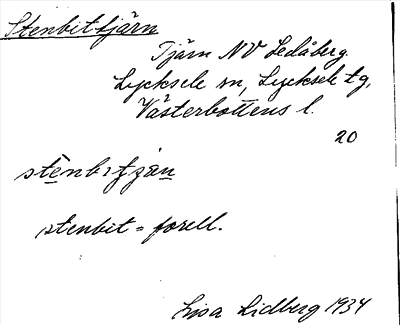 Stenbittjärn
Tjärn NV Ledåberg.
Lycksele sn, Lycksele tg,
Västerbottens l.
20
stenbitjan
stenbit = forell.
Lisa Lidberg 1934